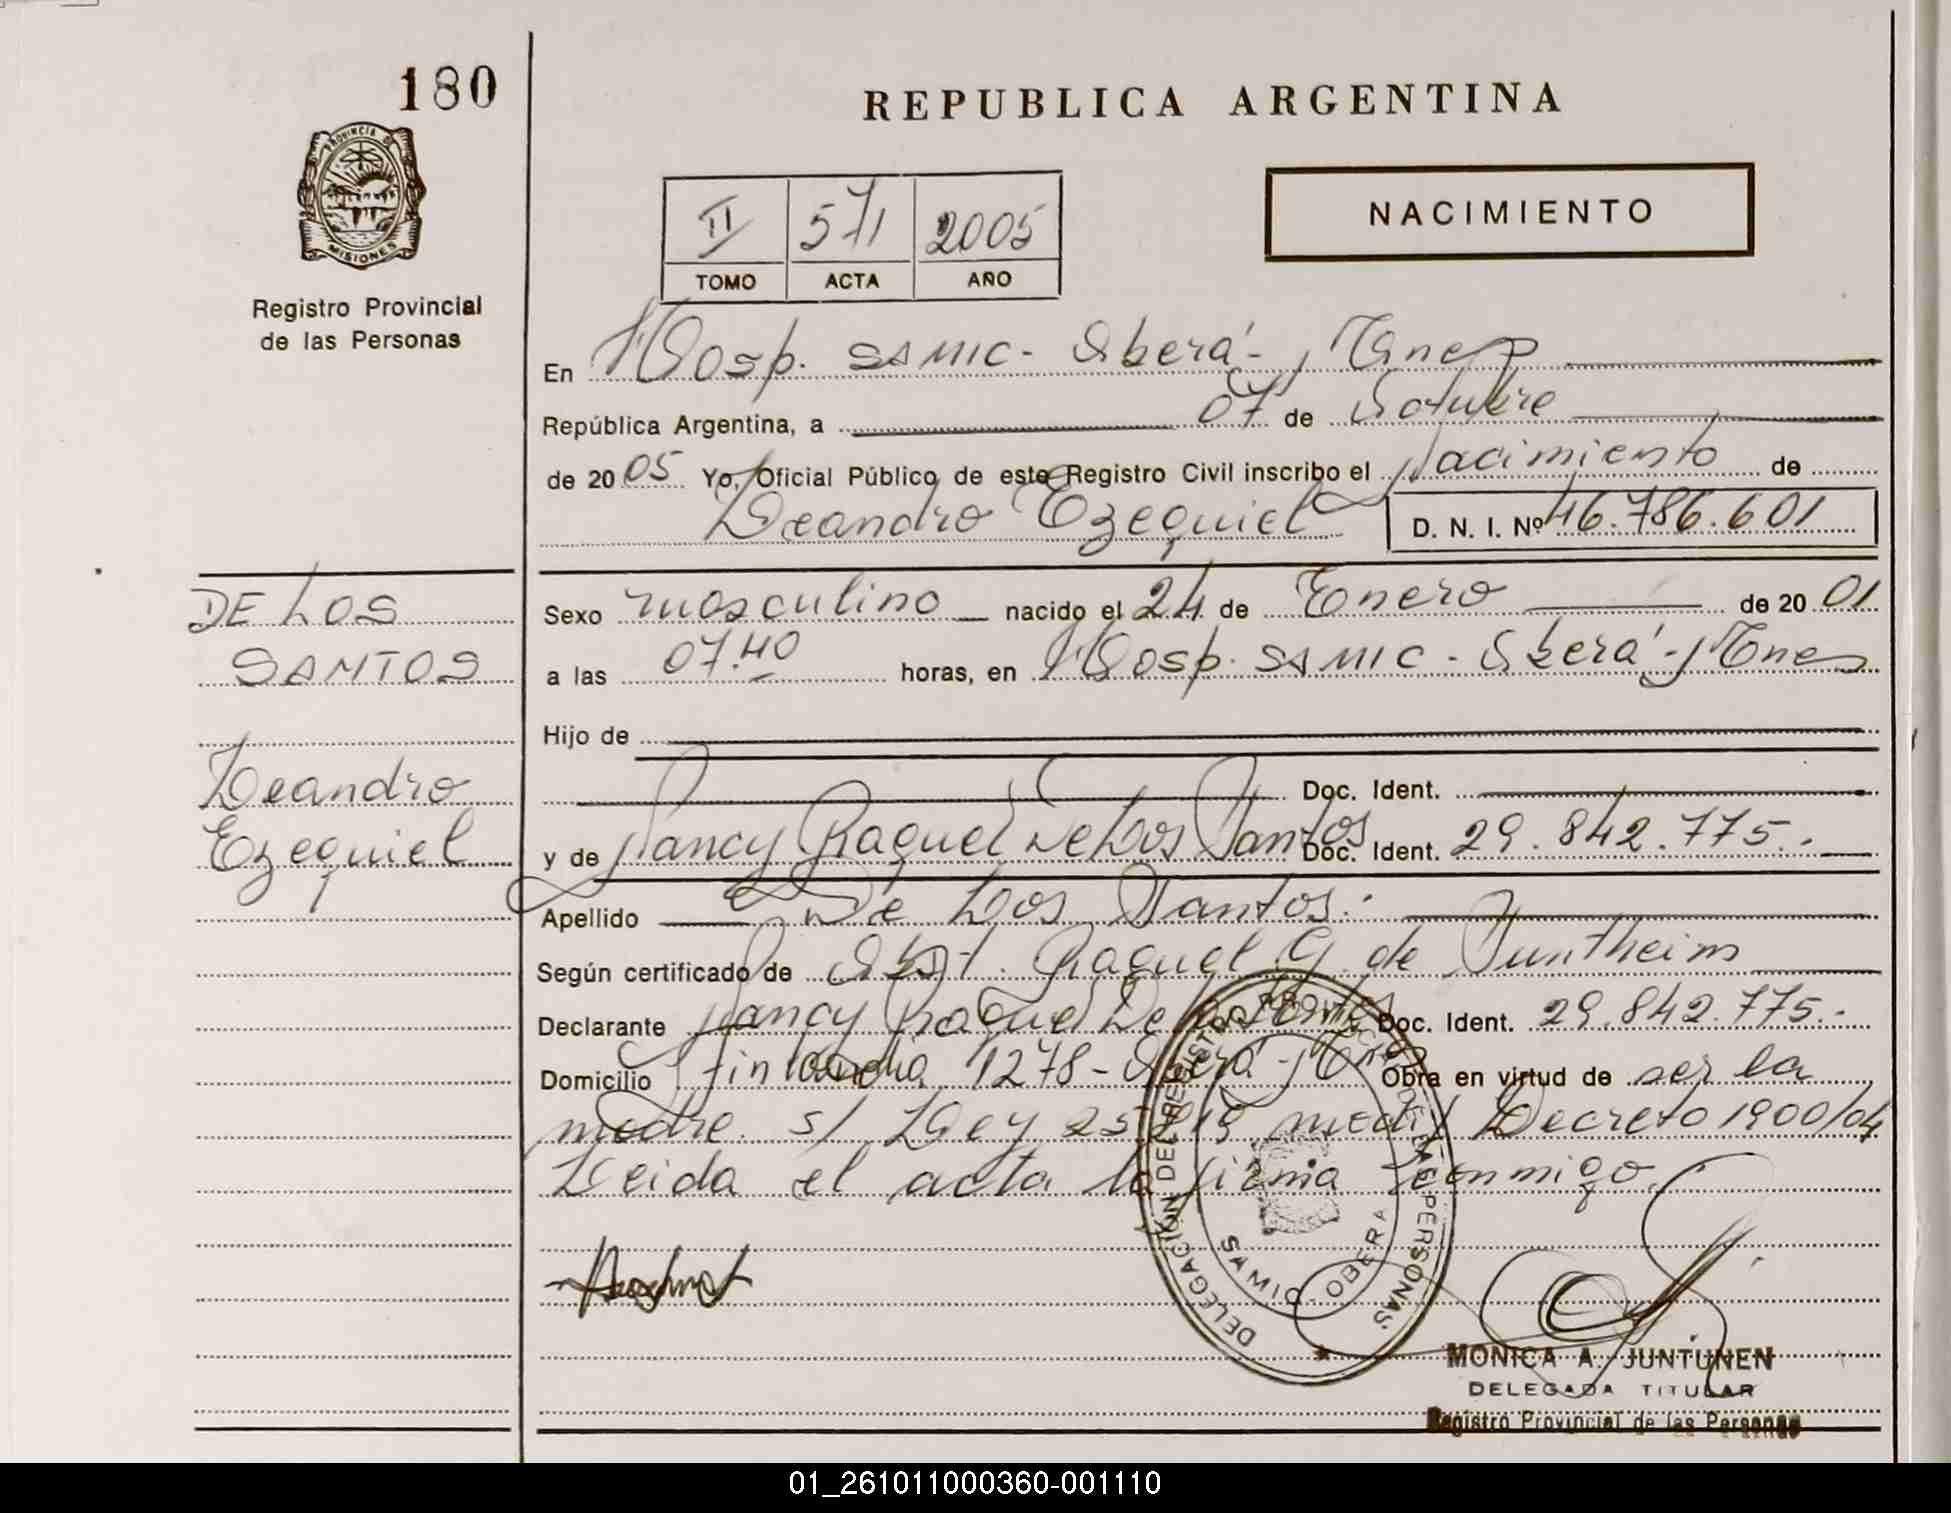 180
PROVINCIA DE
MISIONES
Registro Provincial
de las Personas
REPUBLICA ARGENTINA
II 571 2005
TOMO ACTA AÑO
NACIMIENTO
En Hosp. SAMIC - Oberá - Mnes
República Argentina, a 07 de Octubre
de 20 05 Yo, Oficial Público de este Registro Civil inscribo el Nacimiento de
Leandro Ezequiel D. N. I. Nº 46.786.601
DE LOS
SANTOS
Leandro
Ezequiel
Sexo masculino nacido el 24 de Enero de 20 01
a las 07.40 horas, en Hosp. SAMIC - Oberá - Mnes
Hijo de
Doc. Ident.
y de Nancy Raquel De Los Santos Doc. Ident. 29.842.775.
Apellido De Los Santos.
Según certificado de Obst. Raquel G. de Suntheim
Declarante Nancy Raquel De Los Santos Doc. Ident. 29.842.775.-
Domicilio Finlandia 1278 - Oberá - Mnes Obra en virtud de ser la
madre. s/ Ley 25.819 Decreto 1900/04
Leida el acta la firma conmigo.
DELEGACIÓN DEL REGISTRO PROVINCIAL DE LAS PERSONAS
SAMIC - OBERA
MONICA A. JUNTUNEN
DELEGADA TITULAR
Registro Provincial de las Personas
01_261011000360-001110